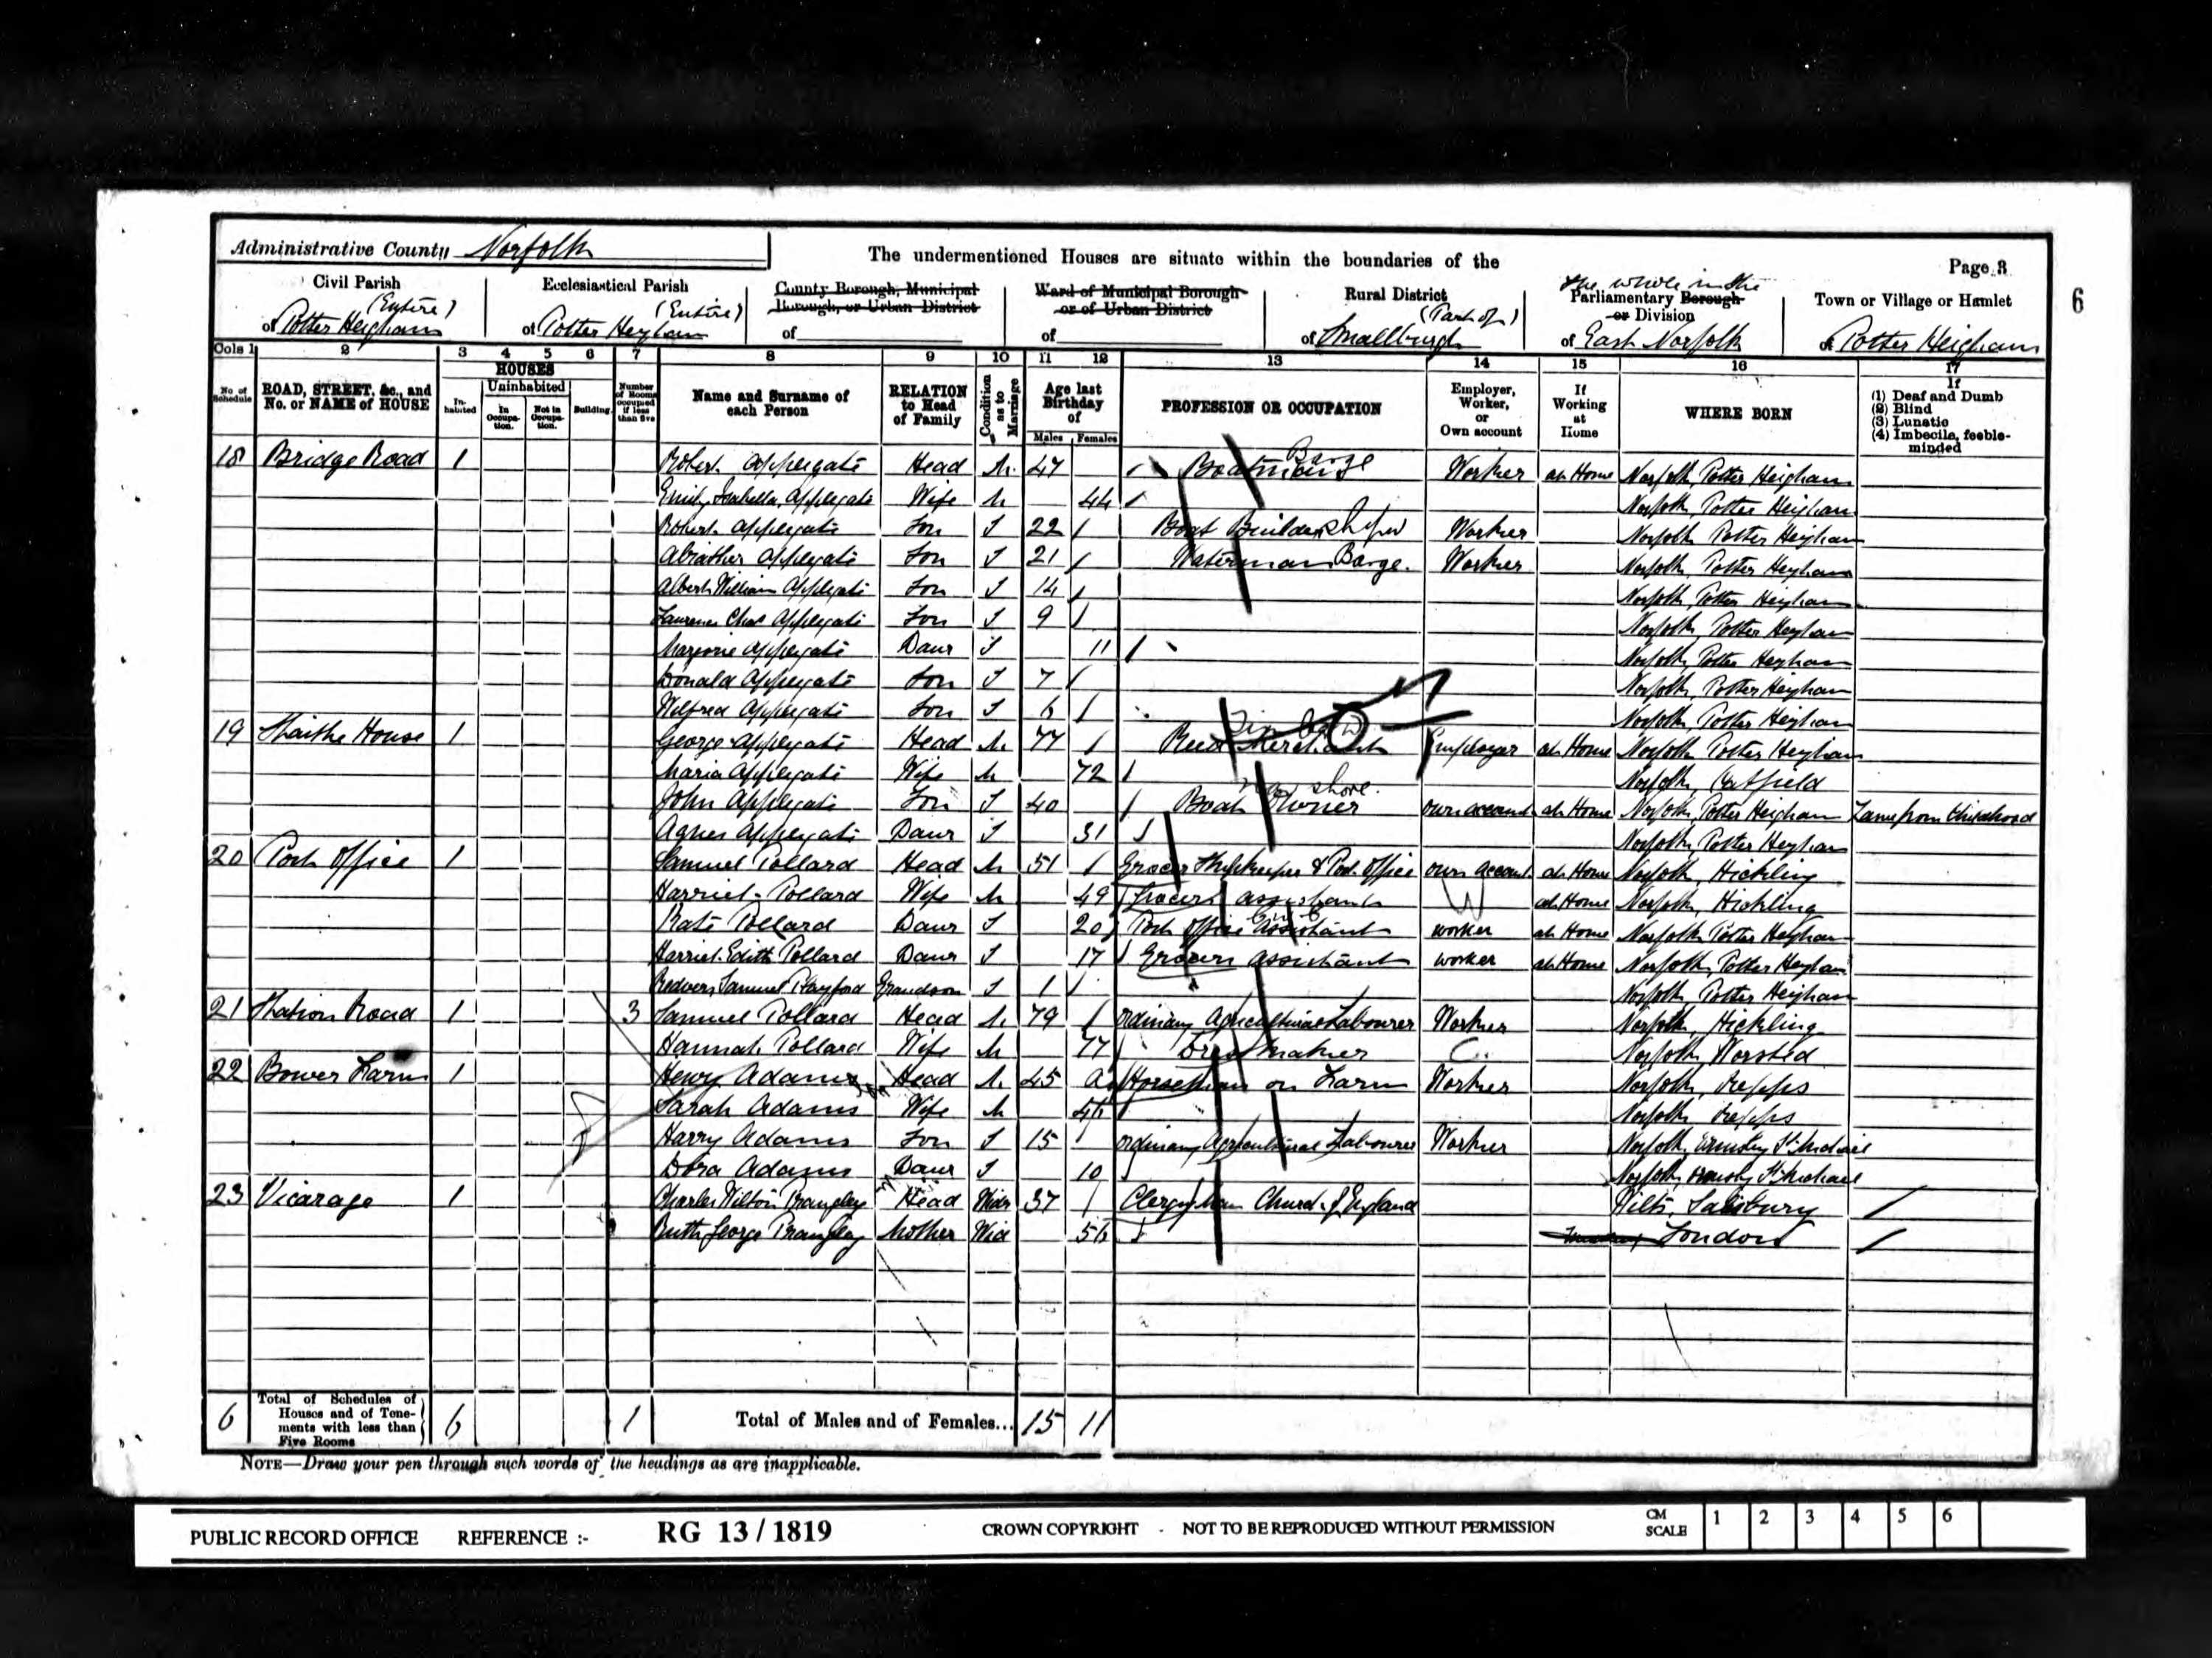 Administrative County Norfolk
The undermentioned Houses are situate within the boundaries of the
Page 3
6
Civil Parish (Entire) of Potter Heigham
Ecclesiastical Parish (Entire) of Potter Heigham
County Borough, Municipal Borough, or Urban District of
Ward of Municipal Borough or of Urban District of
Rural District (Part of) of Smallburgh
The whole in the Parliamentary Borough or Division of East Norfolk
Town or Village or Hamlet of Potter Heigham
Cols 1 2 3 4 5 6 7 8 9 10 11 12 13 14 15 16 17
No of Schedule
ROAD, STREET, &c., and No. or NAME of HOUSE
HOUSES
Inhabited
Uninhabited
In Occupation.
Not in Occupation.
Building.
Number of Rooms occupied if less than five
Name and Surname of each Person
RELATION to Head of Family
Condition as to Marriage
Age last Birthday of
Males Females
PROFESSION OR OCCUPATION
Employer, Worker, or Own account
If Working at Home
WHERE BORN
If (1) Deaf and Dumb (2) Blind (3) Lunatic (4) Imbecile, feeble-minded
18 Bridge Road 1 Robert Applegate Head M. 47 Boatman Barge Worker at Home Norfolk, Potter Heigham
Emily Isabella Applegate Wife M 44 Norfolk, Potter Heigham
Robert Applegate Son S 22 Boat Builder Worker Norfolk Potter Heigham
Abiather Applegate Son S 21 Waterman Barge. Worker Norfolk, Potter Heigham
Albert William Applegate Son S 14 Norfolk, Potter Heigham
Laurence Chas Applegate Son S 9 Norfolk, Potter Heigham
Marjorie Applegate Daur S 11 Norfolk, Potter Heigham
Donald Applegate Son S 7 Norfolk, Potter Heigham
Wilfred Applegate Son S 6 Norfolk, Potter Heigham
19 Staithe House 1 George Applegate Head M. 77 Reed Merchant Employer at Home Norfolk Potter Heigham
Maria Applegate Wife M 72 Norfolk, Catfield
John Applegate Son S 40 Boat Owner own account at Home Norfolk, Potter Heigham Lame from Childhood
Agnes Applegate Daur S 31 Norfolk, Potter Heigham
20 Post Office 1 Samuel Pollard Head M 51 Grocer Shopkeeper & Post Office own account at Home Norfolk, Hickling
Harriet Pollard Wife M 49 Grocers assistant W at Home Norfolk, Hickling
Kate Pollard Daur S 20 Post Office Assistant worker at Home Norfolk Potter Heigham
Harriet Edith Pollard Daur S 17 Grocers assistant worker at Home Norfolk, Potter Heigham
Redvers Samuel Grandson S 1 Norfolk, Potter Heigham
21 Station Road 1 3 Samuel Pollard Head M 79 ordinary Agricultural Labourer Worker Norfolk, Hickling
Hannah Pollard Wife M 77 Norfolk, Worsted
22 Bower Farm 1 Henry Adams Head M. 45 Horseman on Farm Worker Norfolk, Repps
Sarah Adams Wife M 46 Norfolk Repps
Harry Adams Son S 15 ordinary Agricultural Labourer Worker Norfolk, Ormesby St Michael
Dora Adams Daur S 10 Norfolk, Ormesby St Michael
23 Vicarage 1 Charles Wilton Prangley Head Widr 37 Clergyman Church of England Wilts, Salisbury
Ruth George Prangley Mother Wid 56 London
6 Total of Schedules of Houses and of Tenements with less than Five Rooms 6 1 Total of Males and of Females... 15 11
NOTE—Draw your pen through such words of the headings as are inapplicable.
PUBLIC RECORD OFFICE REFERENCE :- RG 13/1819 CROWN COPYRIGHT - NOT TO BE REPRODUCED WITHOUT PERMISSION CM SCALE 1 2 3 4 5 6